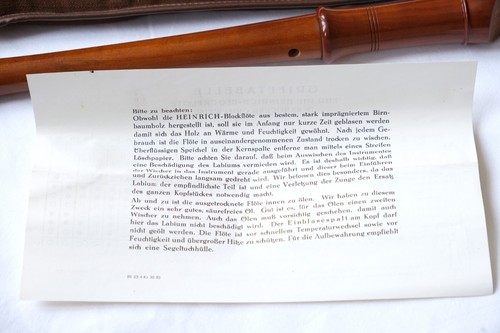 Bitte zu beachten:
Obwohl die HEINRICH-Blockflöte aus bestem, stark imprägniertem Birn-
baumholz hergestellt ist, soll sie im Anfang nur kurze Zeit geblasen werden
damit sich das Holz an Wärme und Feuchtigkeit gewöhnt. Nach jedem Ge-
brauch ist die Flöte in auseinandergenommenen Zustand trocken zu wischen.
Überflüssigen Speichel in der Kernspalte entferne man mittels eines Streifen
Löschpapier. Bitte achten Sie darauf, daß beim Auswischen des Instrumentes
eine Beschädigung des Labiums vermieden wird. Es ist deshalb wichtig, daß
der Wischer in das Instrument gerade eingeführt und dieser beim Einführen
und Zurückziehen langsam gedreht wird. Wir betonen dies besonders, da das
Labium der empfindlichste Teil ist und eine Verletzung der Zunge den Ersatz
des ganzen Kopfstückes notwendig macht.
Ab und zu ist die ausgetrocknete Flöte innen zu ölen. Wir haben zu diesem
Zweck ein sehr gutes, säurefreies Öl. Gut ist es, für das Ölen einen zweiten
Wischer zu nehmen. Auch das Ölen muß vorsichtig geschehen, damit auch
hier das Labium nicht beschädigt wird. Der Einblasespalt am Kopf darf
nicht geölt werden. Die Flöte ist vor schnellem Temperaturwechsel sowie vor
Feuchtigkeit und übergroßer Hitze zu schützen. Für die Aufbewahrung empfiehlt
sich eine Segeltuchhülle.